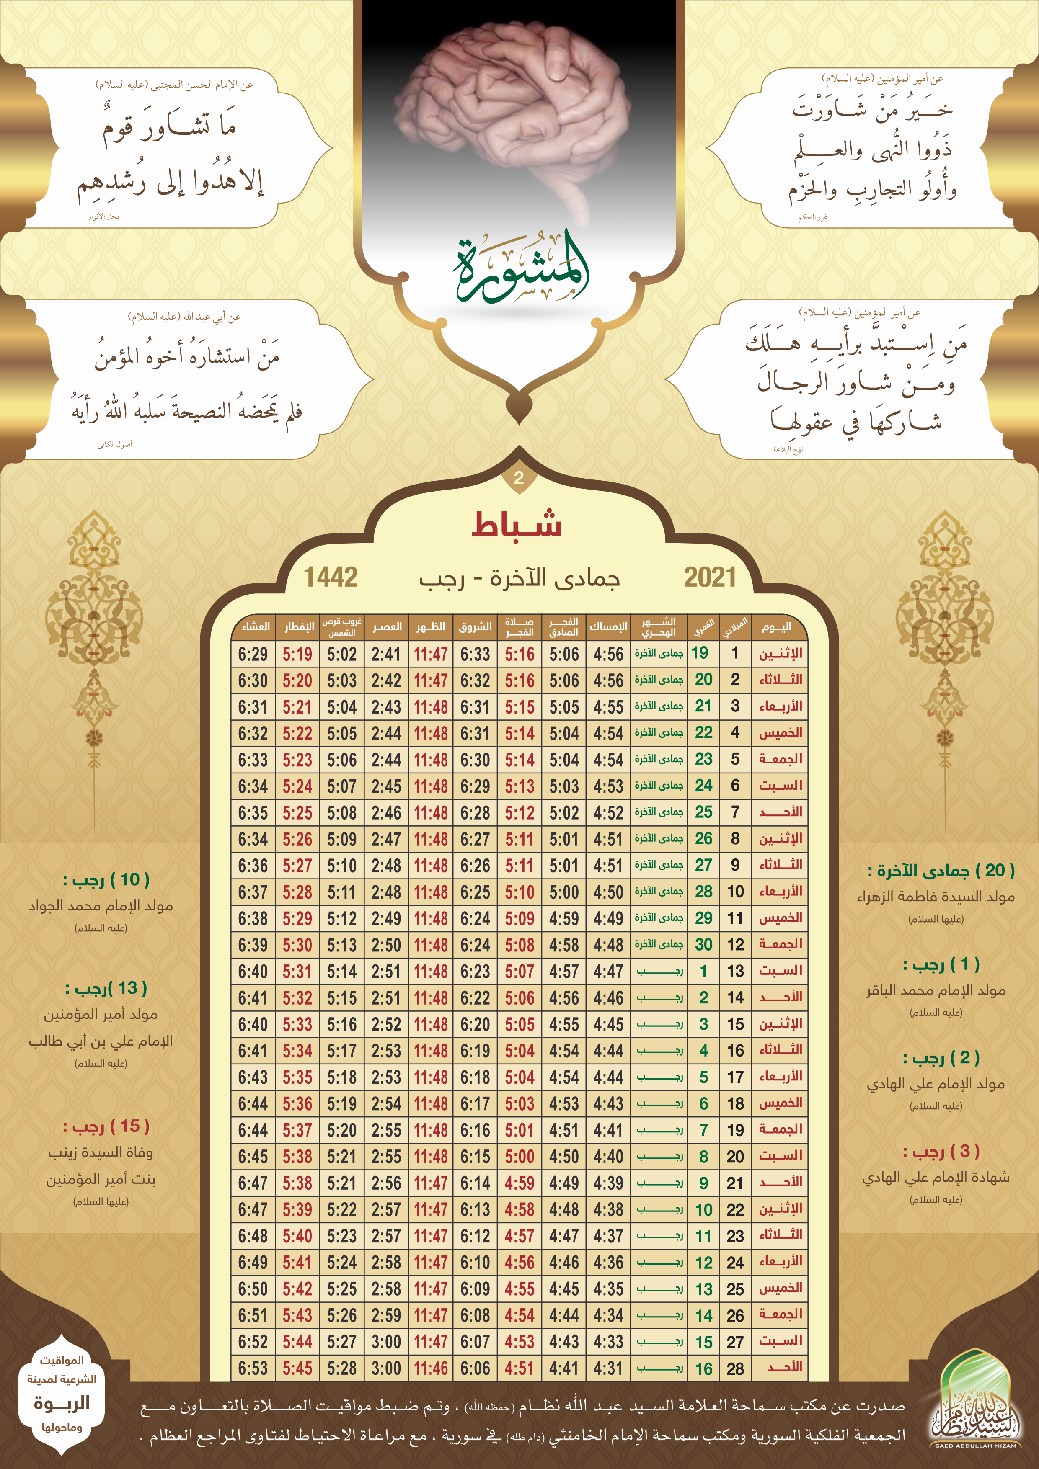 عن أمير المؤمنين (عليه السلام)
خَيرُ مَنْ شَاوَرْتَ
ذَوُوا النُّهى والعِلْمِ
وأُولُو التجارِبِ والحَزْمِ
غرر الحكم
عن الإمام الحسن المجتبى (عليه السلام)
مَا تشَاورَ قومٌ
إلا هُدُوا إلى رُشدِهِم
بحار الأنوار
المشورة
عن أمير المؤمنين (عليه السلام)
مَنِ اِسْتبدَّ برأيِهِ هَلَكَ
ومَنْ شاورَ الرجالَ
شاركهَا في عقولِهَا
نهج البلاغة
عن أبي عبد الله (عليه السلام)
مَنْ استشارَهُ أخوهُ المؤمنُ
فلم يَمحَضهُ النصيحةَ سَلبهُ اللهُ رأيَهُ
أصول الكافي
2
شباط
2021 جمادى الآخرة - رجب 1442
اليوم الميلادي القمري الشهر الهجري الإمساك الفجر الصادق صلاة الفجر الشروق الظهر العصر غروب قرص الشمس الإفطار العشاء
الإثنين 1 19 جمادى الآخرة 4:56 5:06 5:16 6:33 11:47 2:41 5:02 5:19 6:29
الثلاثاء 2 20 جمادى الآخرة 4:56 5:06 5:16 6:32 11:47 2:42 5:03 5:20 6:30
الأربعاء 3 21 جمادى الآخرة 4:55 5:05 5:15 6:31 11:48 2:43 5:04 5:21 6:31
الخميس 4 22 جمادى الآخرة 4:54 5:04 5:14 6:31 11:48 2:44 5:05 5:22 6:32
الجمعة 5 23 جمادى الآخرة 4:54 5:04 5:14 6:30 11:48 2:44 5:06 5:23 6:33
السبت 6 24 جمادى الآخرة 4:53 5:03 5:13 6:29 11:48 2:45 5:07 5:24 6:34
الأحد 7 25 جمادى الآخرة 4:52 5:02 5:12 6:28 11:48 2:46 5:08 5:25 6:35
الإثنين 8 26 جمادى الآخرة 4:51 5:01 5:11 6:27 11:48 2:47 5:09 5:26 6:34
الثلاثاء 9 27 جمادى الآخرة 4:51 5:01 5:11 6:26 11:48 2:48 5:10 5:27 6:36
الأربعاء 10 28 جمادى الآخرة 4:50 5:00 5:10 6:25 11:48 2:48 5:11 5:28 6:37
الخميس 11 29 جمادى الآخرة 4:49 4:59 5:09 6:24 11:48 2:49 5:12 5:29 6:38
الجمعة 12 30 جمادى الآخرة 4:48 4:58 5:08 6:24 11:48 2:50 5:13 5:30 6:39
السبت 13 1 رجب 4:47 4:57 5:07 6:23 11:48 2:51 5:14 5:31 6:40
الأحد 14 2 رجب 4:46 4:56 5:06 6:22 11:48 2:51 5:15 5:32 6:41
الإثنين 15 3 رجب 4:45 4:55 5:05 6:20 11:48 2:52 5:16 5:33 6:40
الثلاثاء 16 4 رجب 4:44 4:54 5:04 6:19 11:48 2:53 5:17 5:34 6:41
الأربعاء 17 5 رجب 4:44 4:54 5:04 6:18 11:48 2:53 5:18 5:35 6:43
الخميس 18 6 رجب 4:43 4:53 5:03 6:17 11:48 2:54 5:19 5:36 6:44
الجمعة 19 7 رجب 4:41 4:51 5:01 6:16 11:48 2:55 5:20 5:37 6:44
السبت 20 8 رجب 4:40 4:50 5:00 6:15 11:48 2:55 5:21 5:38 6:45
الأحد 21 9 رجب 4:39 4:49 4:59 6:14 11:47 2:56 5:21 5:38 6:47
الإثنين 22 10 رجب 4:38 4:48 4:58 6:13 11:47 2:57 5:22 5:39 6:47
الثلاثاء 23 11 رجب 4:37 4:47 4:57 6:12 11:47 2:57 5:23 5:40 6:48
الأربعاء 24 12 رجب 4:36 4:46 4:56 6:10 11:47 2:58 5:24 5:41 6:49
الخميس 25 13 رجب 4:35 4:45 4:55 6:09 11:47 2:58 5:25 5:42 6:50
الجمعة 26 14 رجب 4:34 4:44 4:54 6:08 11:47 2:59 5:26 5:43 6:51
السبت 27 15 رجب 4:33 4:43 4:53 6:07 11:47 3:00 5:27 5:44 6:52
الأحد 28 16 رجب 4:31 4:41 4:51 6:06 11:46 3:00 5:28 5:45 6:53
( 20 ) جمادى الآخرة :
مولد السيدة فاطمة الزهراء
(عليها السلام)
( 1 ) رجب :
مولد الإمام محمد الباقر
(عليه السلام)
( 2 ) رجب :
مولد الإمام علي الهادي
(عليه السلام)
( 3 ) رجب :
شهادة الإمام علي الهادي
(عليه السلام)
( 10 ) رجب :
مولد الإمام محمد الجواد
(عليه السلام)
( 13 )رجب :
مولد أمير المؤمنين
الإمام علي بن أبي طالب
(عليه السلام)
( 15 ) رجب :
وفاة السيدة زينب
بنت أمير المؤمنين
(عليها السلام)
صدرت عن مكتب سماحة العلامة السيد عبد الله نظام (حفظه الله) ، وتم ضبط مواقيت الصلاة بالتعاون مع
الجمعية الفلكية السورية ومكتب سماحة الإمام الخامنئي (دام ظله) في سورية ، مع مراعاة الاحتياط لفتاوى المراجع العظام .
المواقيت
الشرعية لمدينة
الربوة
وماحولها
السيد عبد الله نظام
SAED ABDULLAH NIZAM